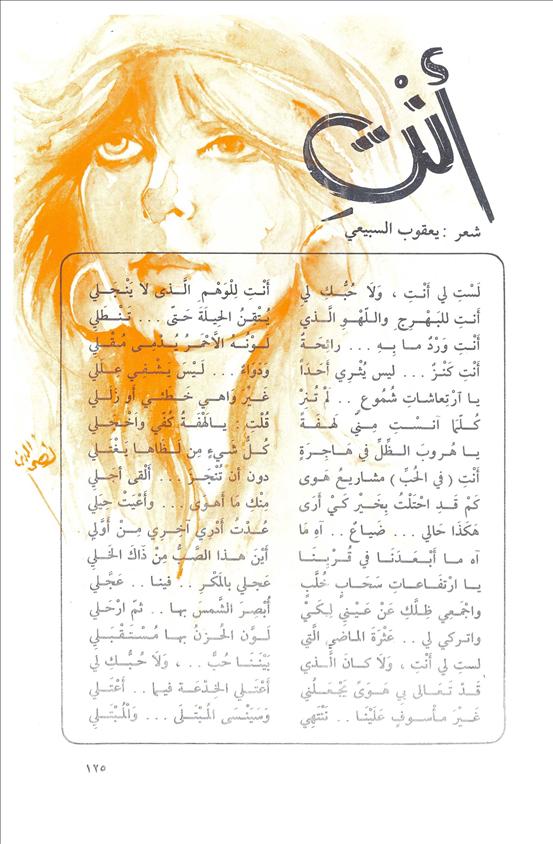 أَنْتِ
شعر : يعقوب السبيعي
لَسْتِ لي أَنْتِ ، وَلَا حُبُّـكِ لي أَنْتِ لِلْوَهْمِ الَّـذى لا يَنْجَـلي
أنتِ للبَهْـرجِ واللَّهْـوِ الَّـذي يُـتْقِـنُ الحِيلَةَ حَتى ... تَـنْـطَلي
أَنْتِ وَرْدٌ ما بِـهِ ... رائحَةٌ لَـوْنُـهُ الأَحْمَـرُ يُـدْمِـى مُـقَـلي
أَنْتِ كَنْـزٌ ... ليس يُثْـرِي أَحَـدًا وَدَوَاءٌ ... لَـيْسَ يَـشْفِـي عِلَلي
يا آرْتِعاشاتِ شُمُوعٍ .. لَمْ تُـنِرْ غَـيْرَ وَاهي خَطَـئي أو زَلَـلي
كُـلَّمَا آنـسْتِ مِـنيِّ لَهفَـةً قُلْتِ : يـالَهْفَةُ كُفّي وَاخْجَـلي
يـا هُـروبَ الظِّـلِّ في هَـاجِرَةٍ كُـلُّ شَيءٍ مِن لَـظَاها يَـغْتَـلي
أَنْتِ ( في الحُبِّ ) مشاريعُ هَـوى دون أن تُنْجَـزَ ... أَلْقى أَجَـلي
كَمْ قَـدِ احْتَلْتُ بِخَيْرٍ كَـيْ أَرَى مِنْكِ مَا أَهـوَى .. وَأَعْيَتْ حِيَلي
هَكَذَا حَالي ... ضَياعٌ .. آهِ مَا عُـدْتُ أَدْرِي آخِـرِي مِـنْ أَوَّلي
آه ما أَبْـعَـدَنَـا في قُـرْبِـنَـا أَيْنَ هـذا الصَّبُّ مِنْ ذَاكَ الخَـلي
يـا ارْتِفَـاعـاتِ سَحَـابٍ خُلَّبٍ عَجِلي بالمَكْـرِ .. فينـا .. عَجِّـلي
واجْمَعِي ظِلَّكِ عَنْ عَيْـنِي لِـكَـيْ أُبْصِـرَ الشَّمْسَ بهـا .. ثُمّ ارْحَـلي
واتـركي لي .. عَثْرَةَ المـاضي الَّتي لَـوَّنَ الحُـزْنُ بهـا مُسْتَـقْبَـلي
لستِ لي أَنْتِ ، وَلَا كـانَ الَّـذي بَيْنَنَـا حُبٌّ .. ، وَلَا حُبُّـكِ لي
قَـدْ تَعَـالى بِي هَـوًى يَجْعَـلُني أَعْتَـلي الخِـدْعَـةَ فيمـا .. أَعْتَـلي
غَـيْرَ مَـأْسـوفٍ عَلَيْنَـا .. نَنْتَهِي وَسَيَنْسَى المُبْتَـلَى ... وَالْمُبْتَـلِي
١٢٥